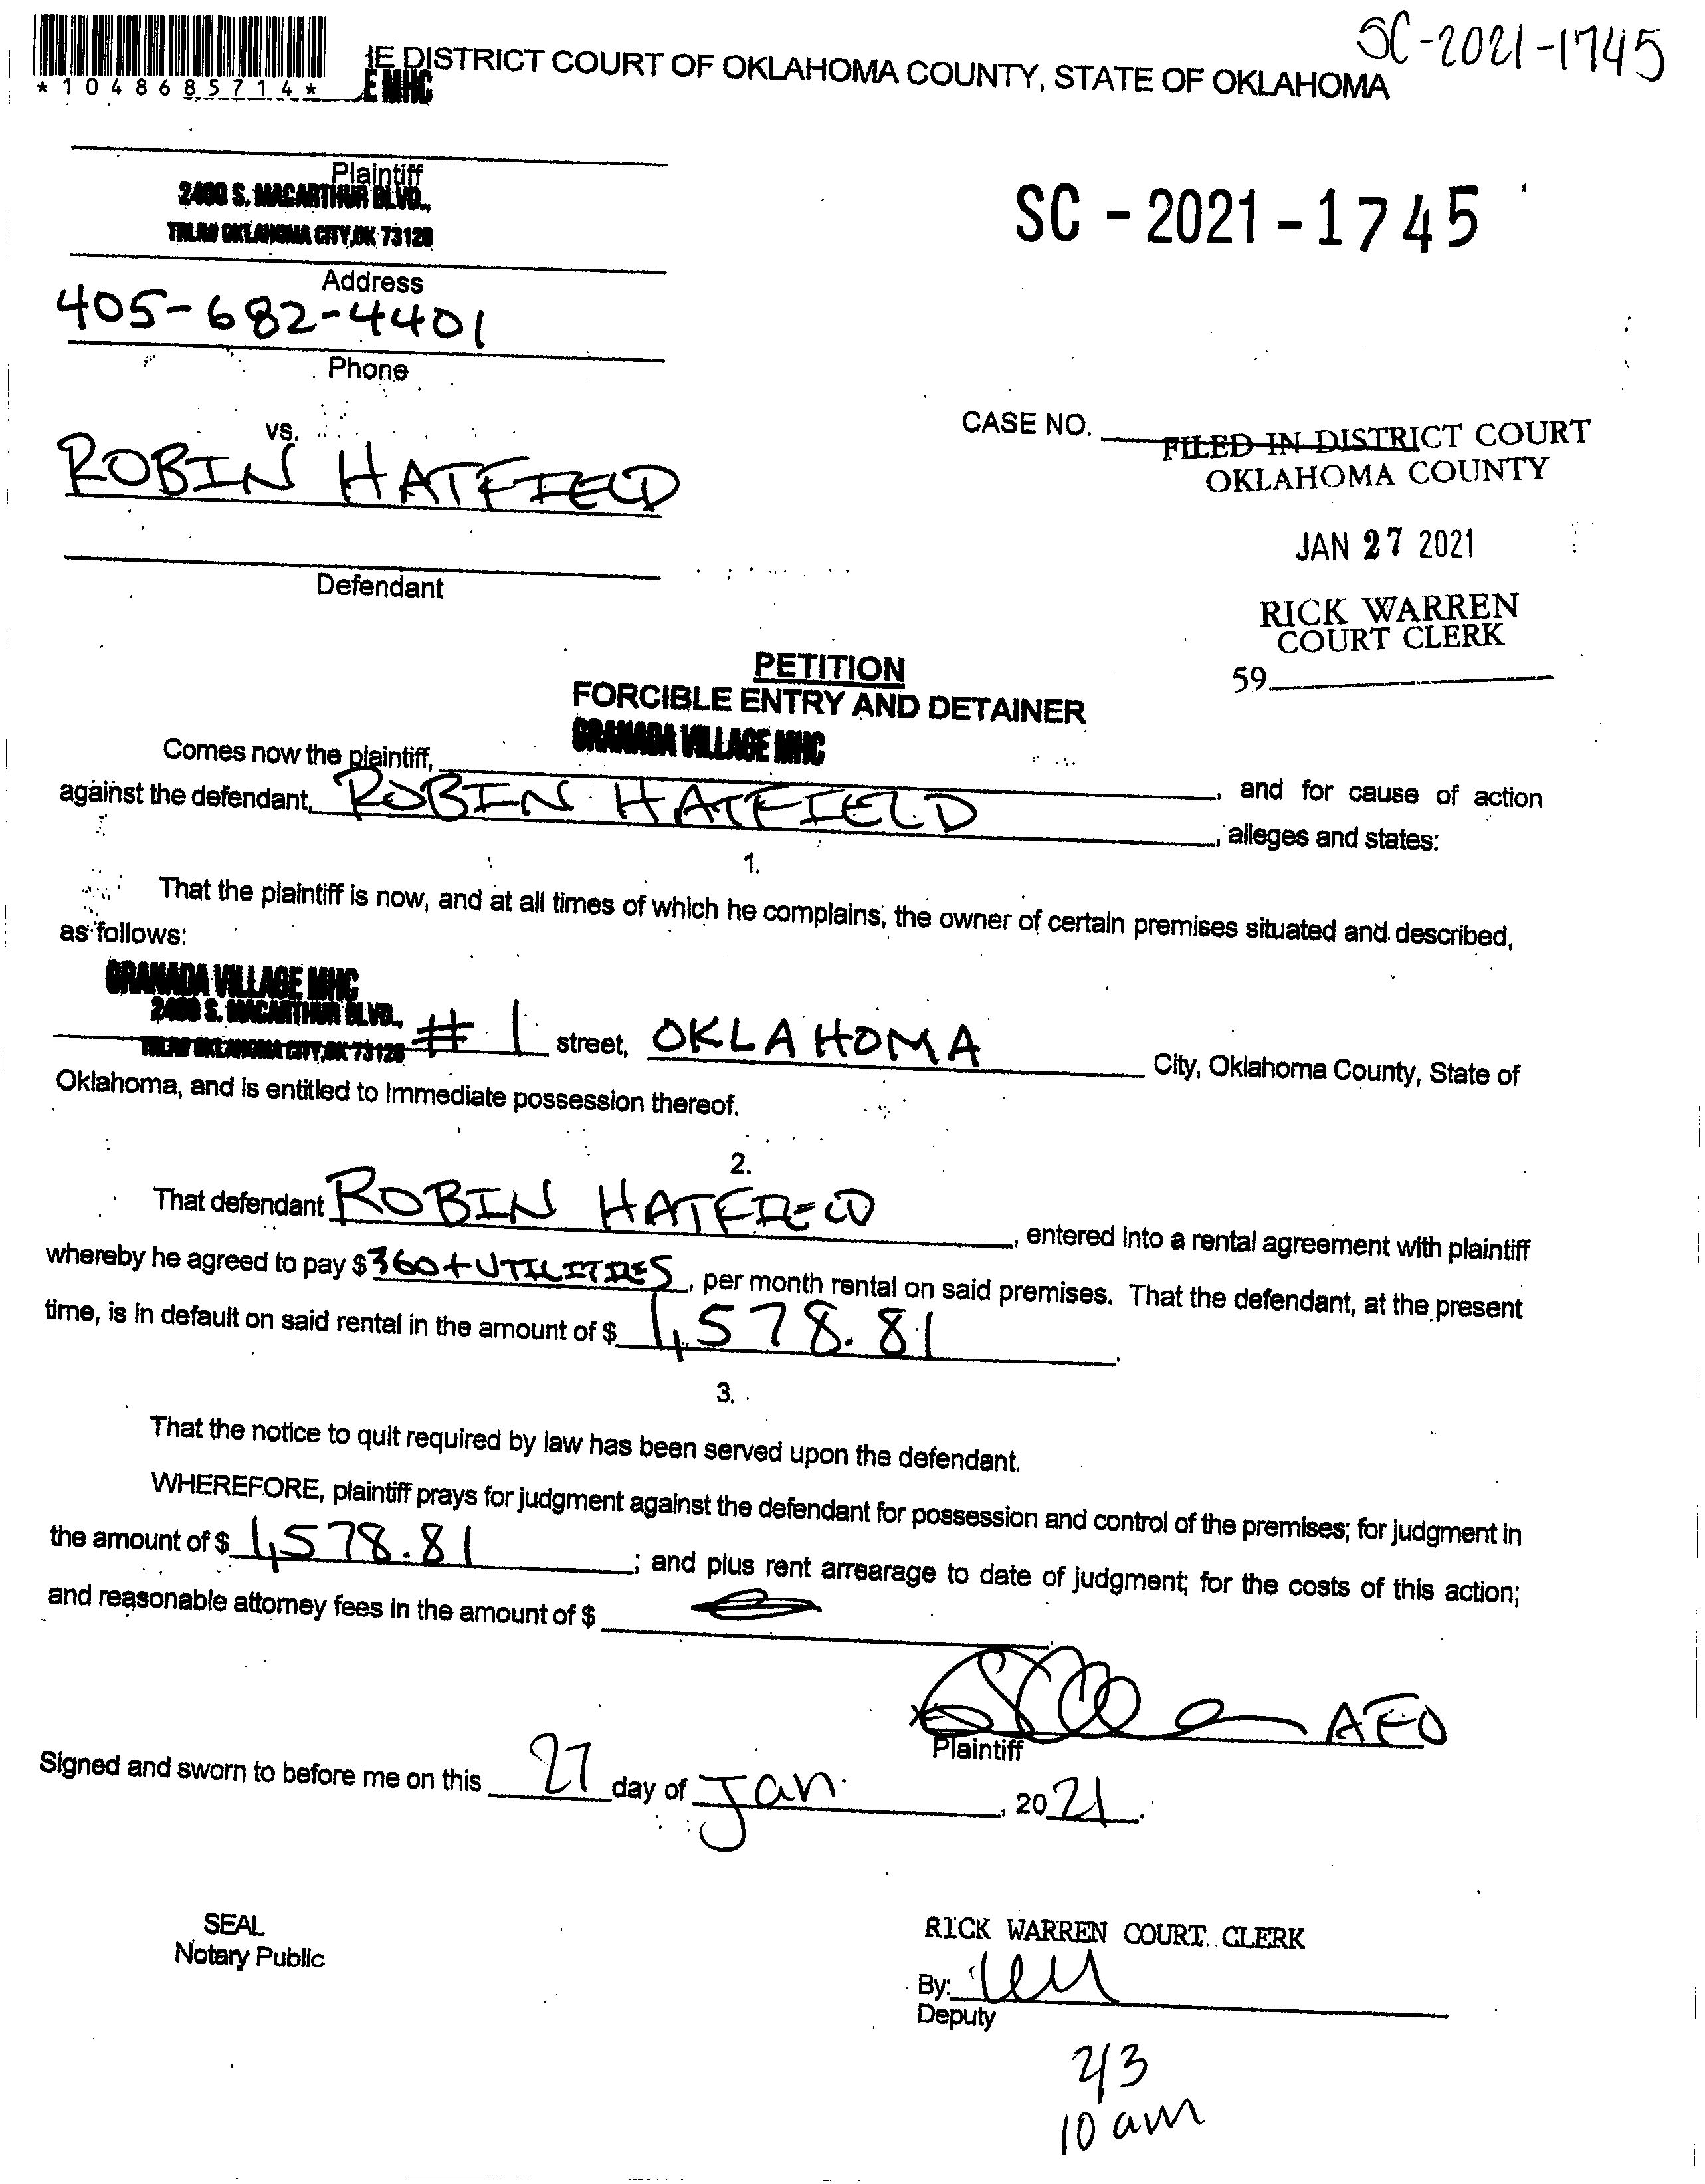 SC-2021-1745
*1048685714*
IE DISTRICT COURT OF OKLAHOMA COUNTY, STATE OF OKLAHOMA
E MHC
Plaintiff
2400 S. MACARTHUR BLVD.,
OKLAHOMA CITY, OK 73128
SC - 2021 - 1745
Address
405-682-4401
Phone
vs.
CASE NO.
FILED IN DISTRICT COURT
OKLAHOMA COUNTY
ROBIN HATFIELD
JAN 27 2021
Defendant
RICK WARREN
COURT CLERK
59
PETITION
FORCIBLE ENTRY AND DETAINER
GRANADA VILLAGE MHC
Comes now the plaintiff, , and for cause of action
against the defendant, ROBIN HATFIELD , alleges and states:
1.
That the plaintiff is now, and at all times of which he complains, the owner of certain premises situated and described,
as follows:
GRANADA VILLAGE MHC
2400 S. MACARTHUR BLVD.,
OKLAHOMA CITY, OK 73128 # 1 street, OKLAHOMA City, Oklahoma County, State of
Oklahoma, and is entitled to immediate possession thereof.
2.
That defendant ROBIN HATFIELD , entered into a rental agreement with plaintiff
whereby he agreed to pay $360+UTILITIES, per month rental on said premises. That the defendant, at the present
time, is in default on said rental in the amount of $ 1,578.81.
3.
That the notice to quit required by law has been served upon the defendant.
WHEREFORE, plaintiff prays for judgment against the defendant for possession and control of the premises; for judgment in
the amount of $ 1,578.81 ; and plus rent arrearage to date of judgment; for the costs of this action;
and reasonable attorney fees in the amount of $ .
AFO
Plaintiff
Signed and sworn to before me on this 27 day of Jan. , 2021.
SEAL
Notary Public
RICK WARREN COURT CLERK
By:
Deputy
2/3
10 am